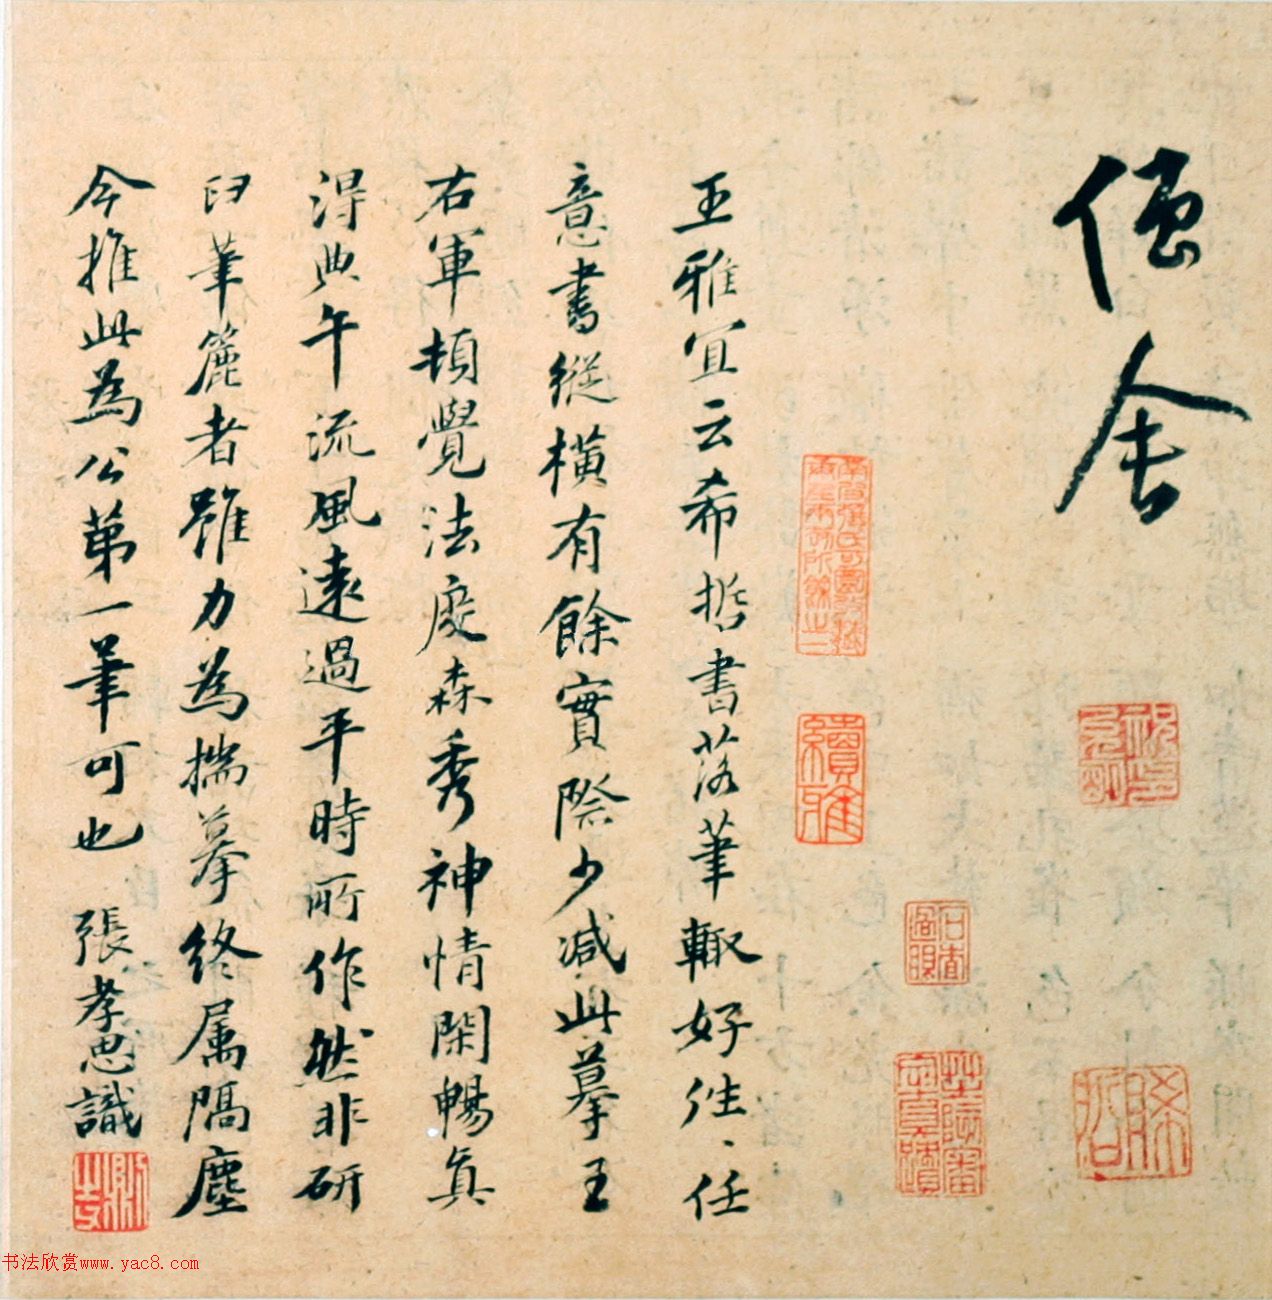 舍
祝允明印
希哲
王雅宜云希哲書落筆輙好往、任
意書縱橫有餘實際少減此摹王
右軍頓覺法度森秀神情閑暢真
淂典午流風遠過平時所作然非研
臼筆簏者雖力為揣摹終属隔塵
今推此為公第一筆可也 張孝思識
则之
书法欣赏www.yac8.com